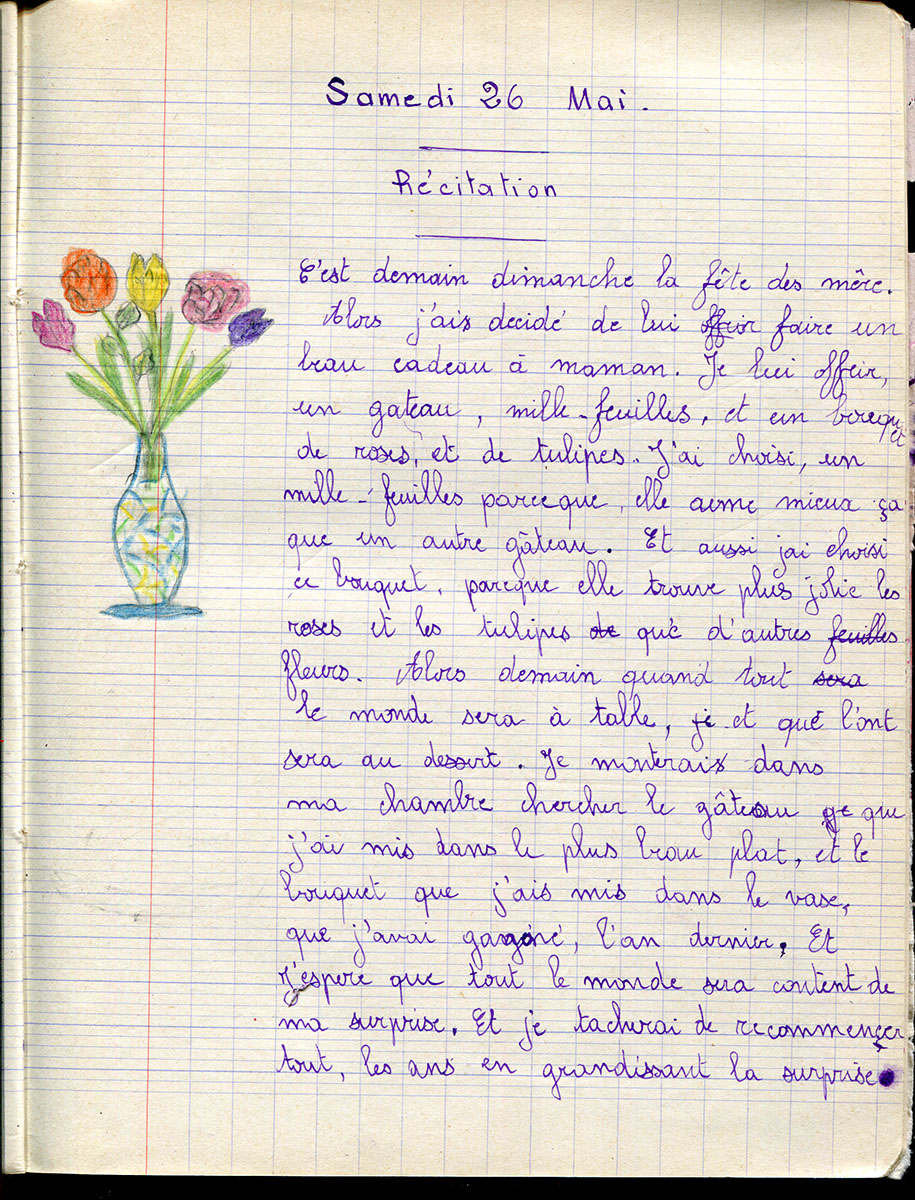 Samedi 26 Mai.
Récitation
C'est demain dimanche la fête des mère.
Alors j'ais decidé de lui offrir faire un
beau cadeau à maman. Je lui offrir,
un gateau, mille-feuilles, et un bouquet
de roses, et de tulipes. J'ai choisi, un
mille-feuilles parceque, elle aime mieux ça
que un autre gâteau. Et aussi jai choisi
ce bouquet, parcque elle trouve plus jolie les
roses et les tulipes de qué d'autres feuilles
fleurs. Alors demain quand tout sera
le monde sera à table, je et qué l'ont
sera au dessert. Je monterais dans
ma chambre chercher le gâteau ge que
j'ai mis dans le plus beau plat, et le
bouquet que j'ais mis dans le vase,
que j'avai gagné, l'an dernier. Et
j'espere que tout le monde sera content de
ma surprise. Et je tacherai de recommencer
tout, les ans en grandissant la surprise